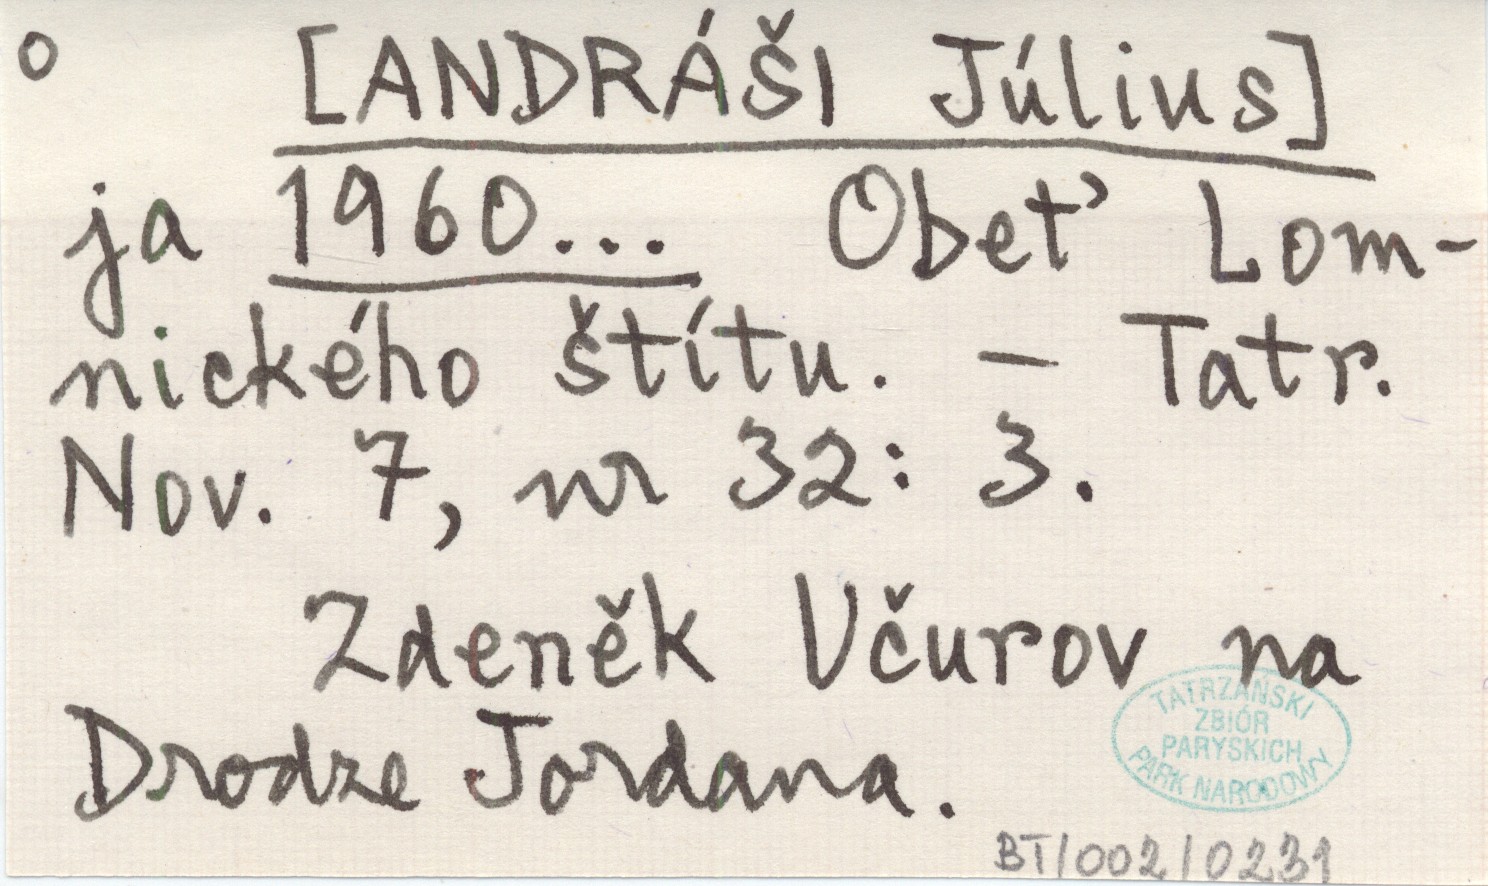 o [ANDRÁŠI Július]
ja 1960... Obeť Lom-
nického štítu. – Tatr.
Nov. 7, nr 32: 3.
Zdeněk Včurov na
Drodze Jordana.
TATRZAŃSKI
ZBIÓR
PARYSKICH
PARK NARODOWY
BT/002/0231